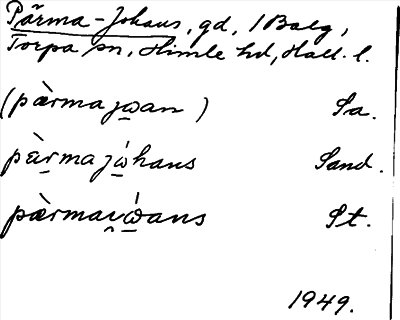 Pärma-Johans, gd, 1 Balg,
Torpa sn, Himle hd, Hall. l.
(pæ̀rmajωan) Sa.
pæ̀rmajώhans Sand.
pæ̀rmaiώans St.
1949.